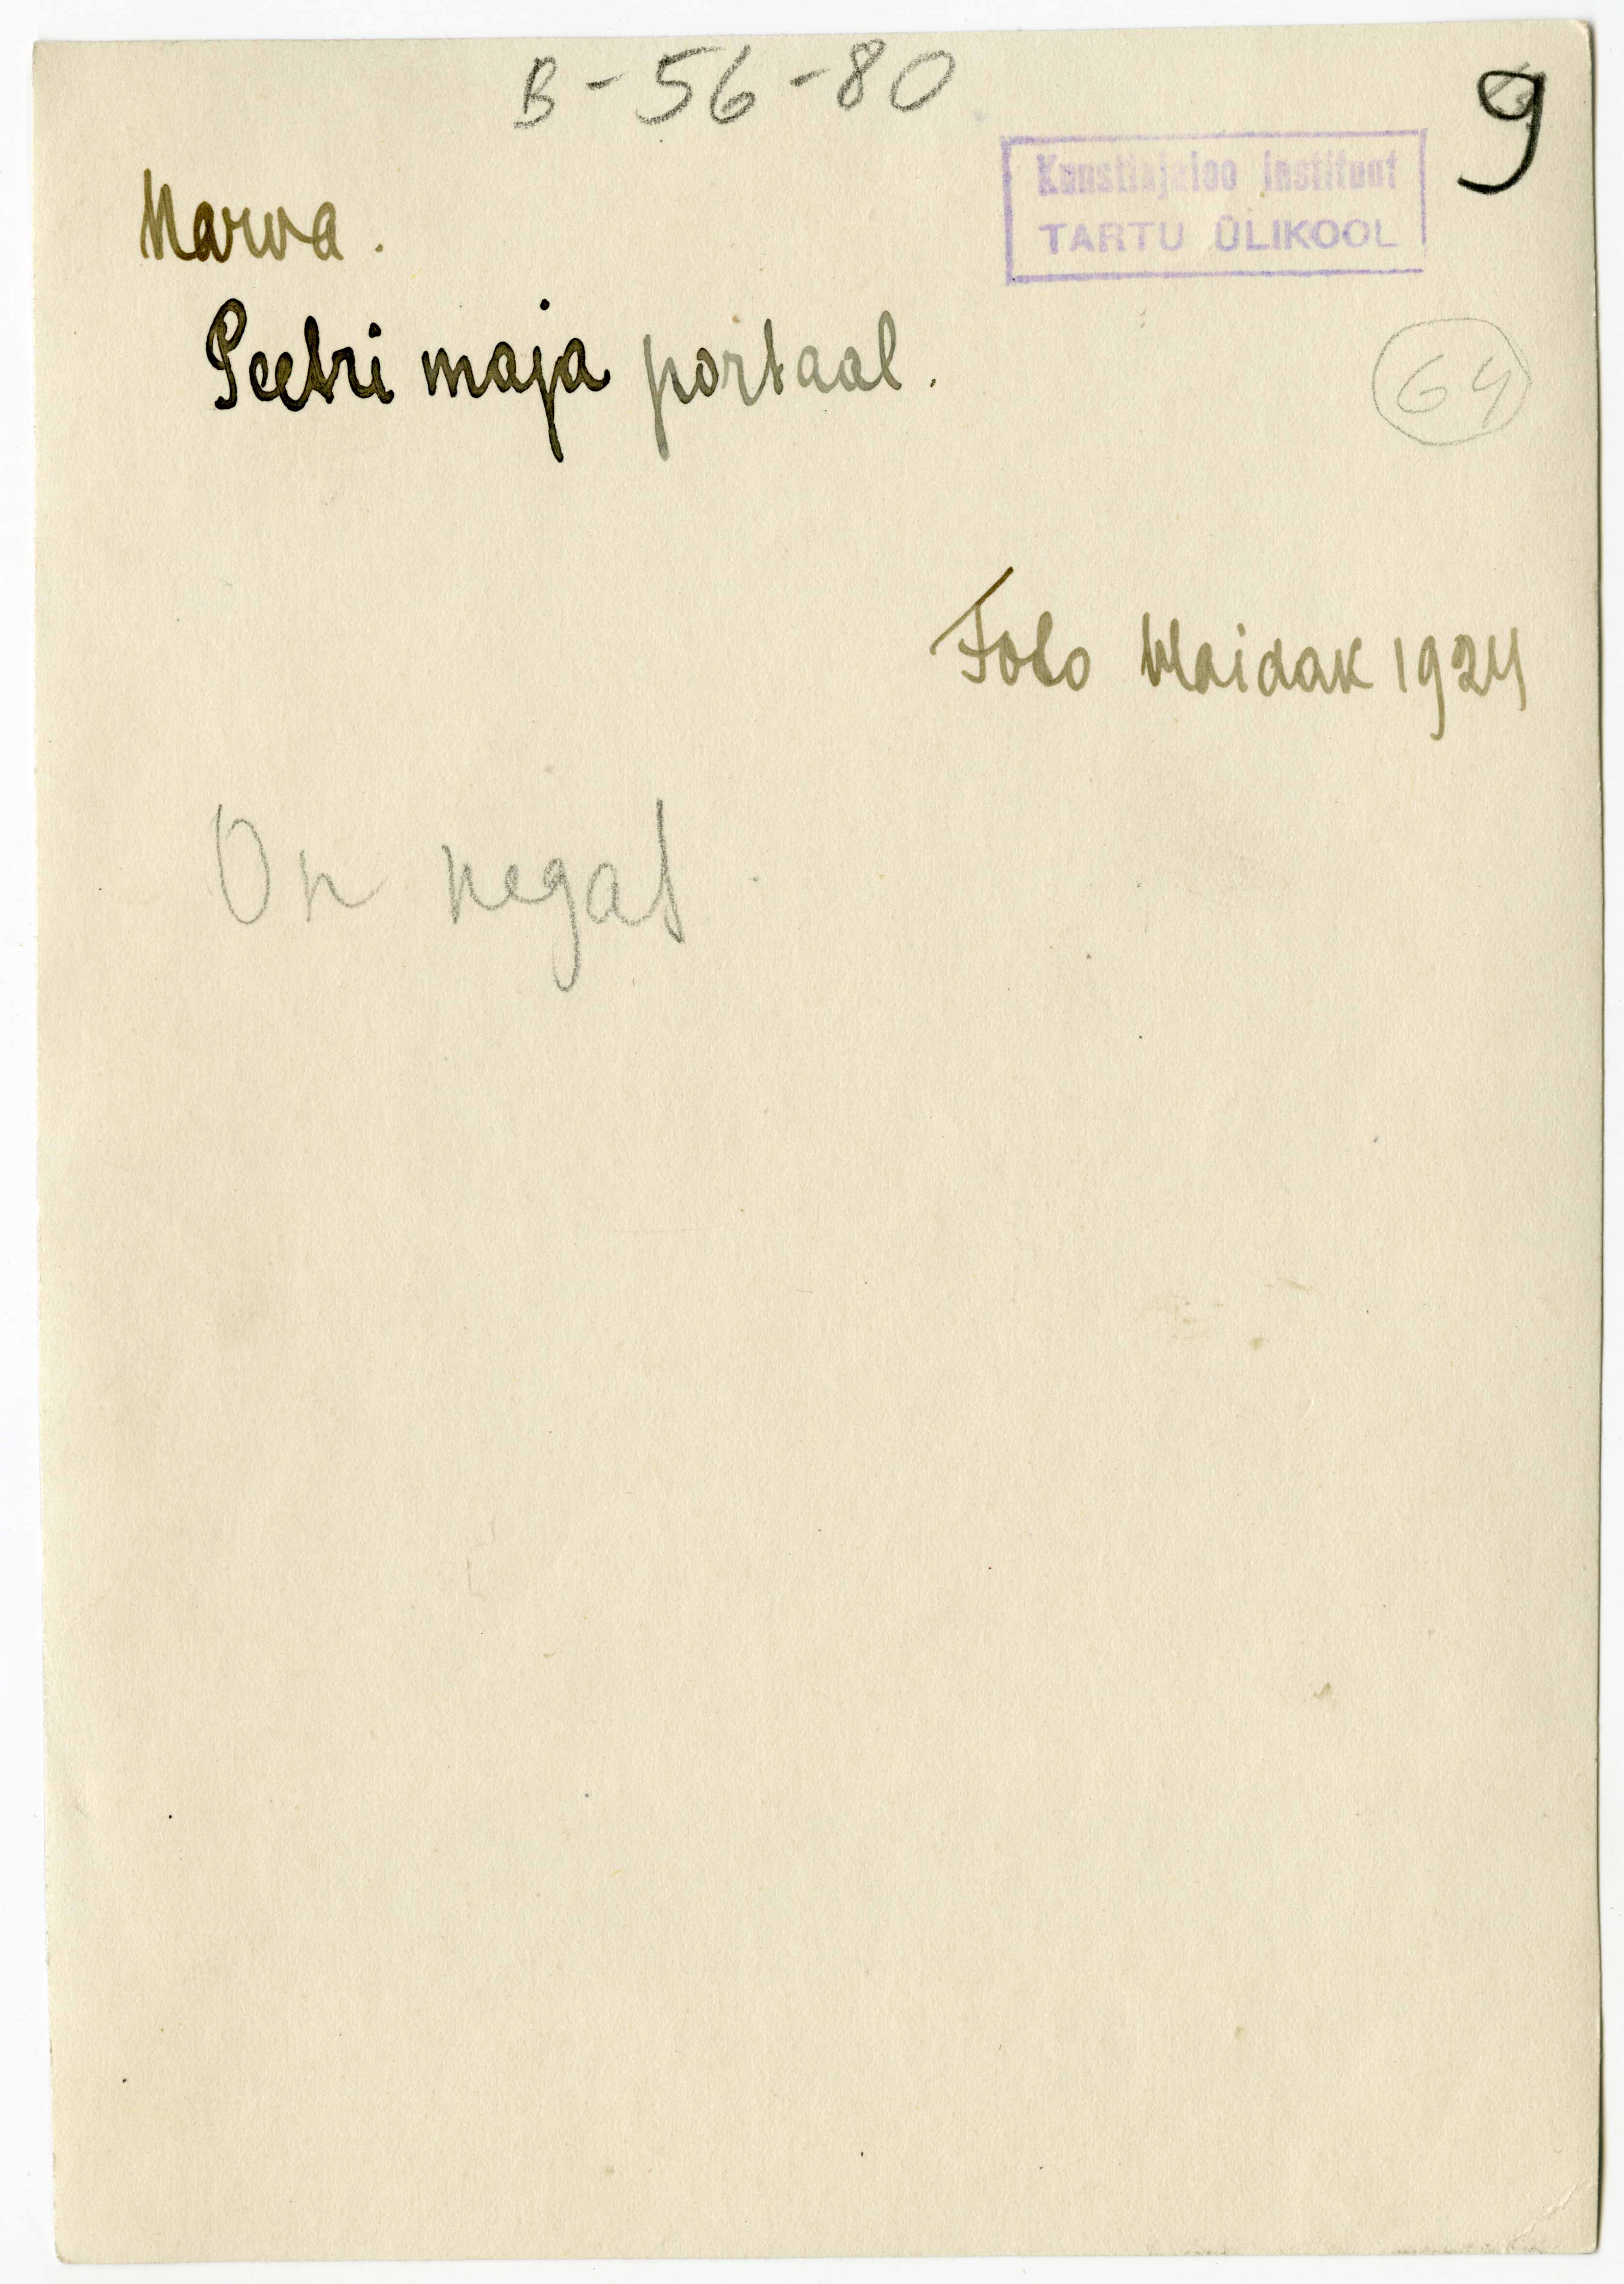 B-56-80
9
Kunstiajaloo Instituut
TARTU ÜLIKOOL
Narva.
Peetri maja portaal.
64
Foto Maidak 1924
On negat